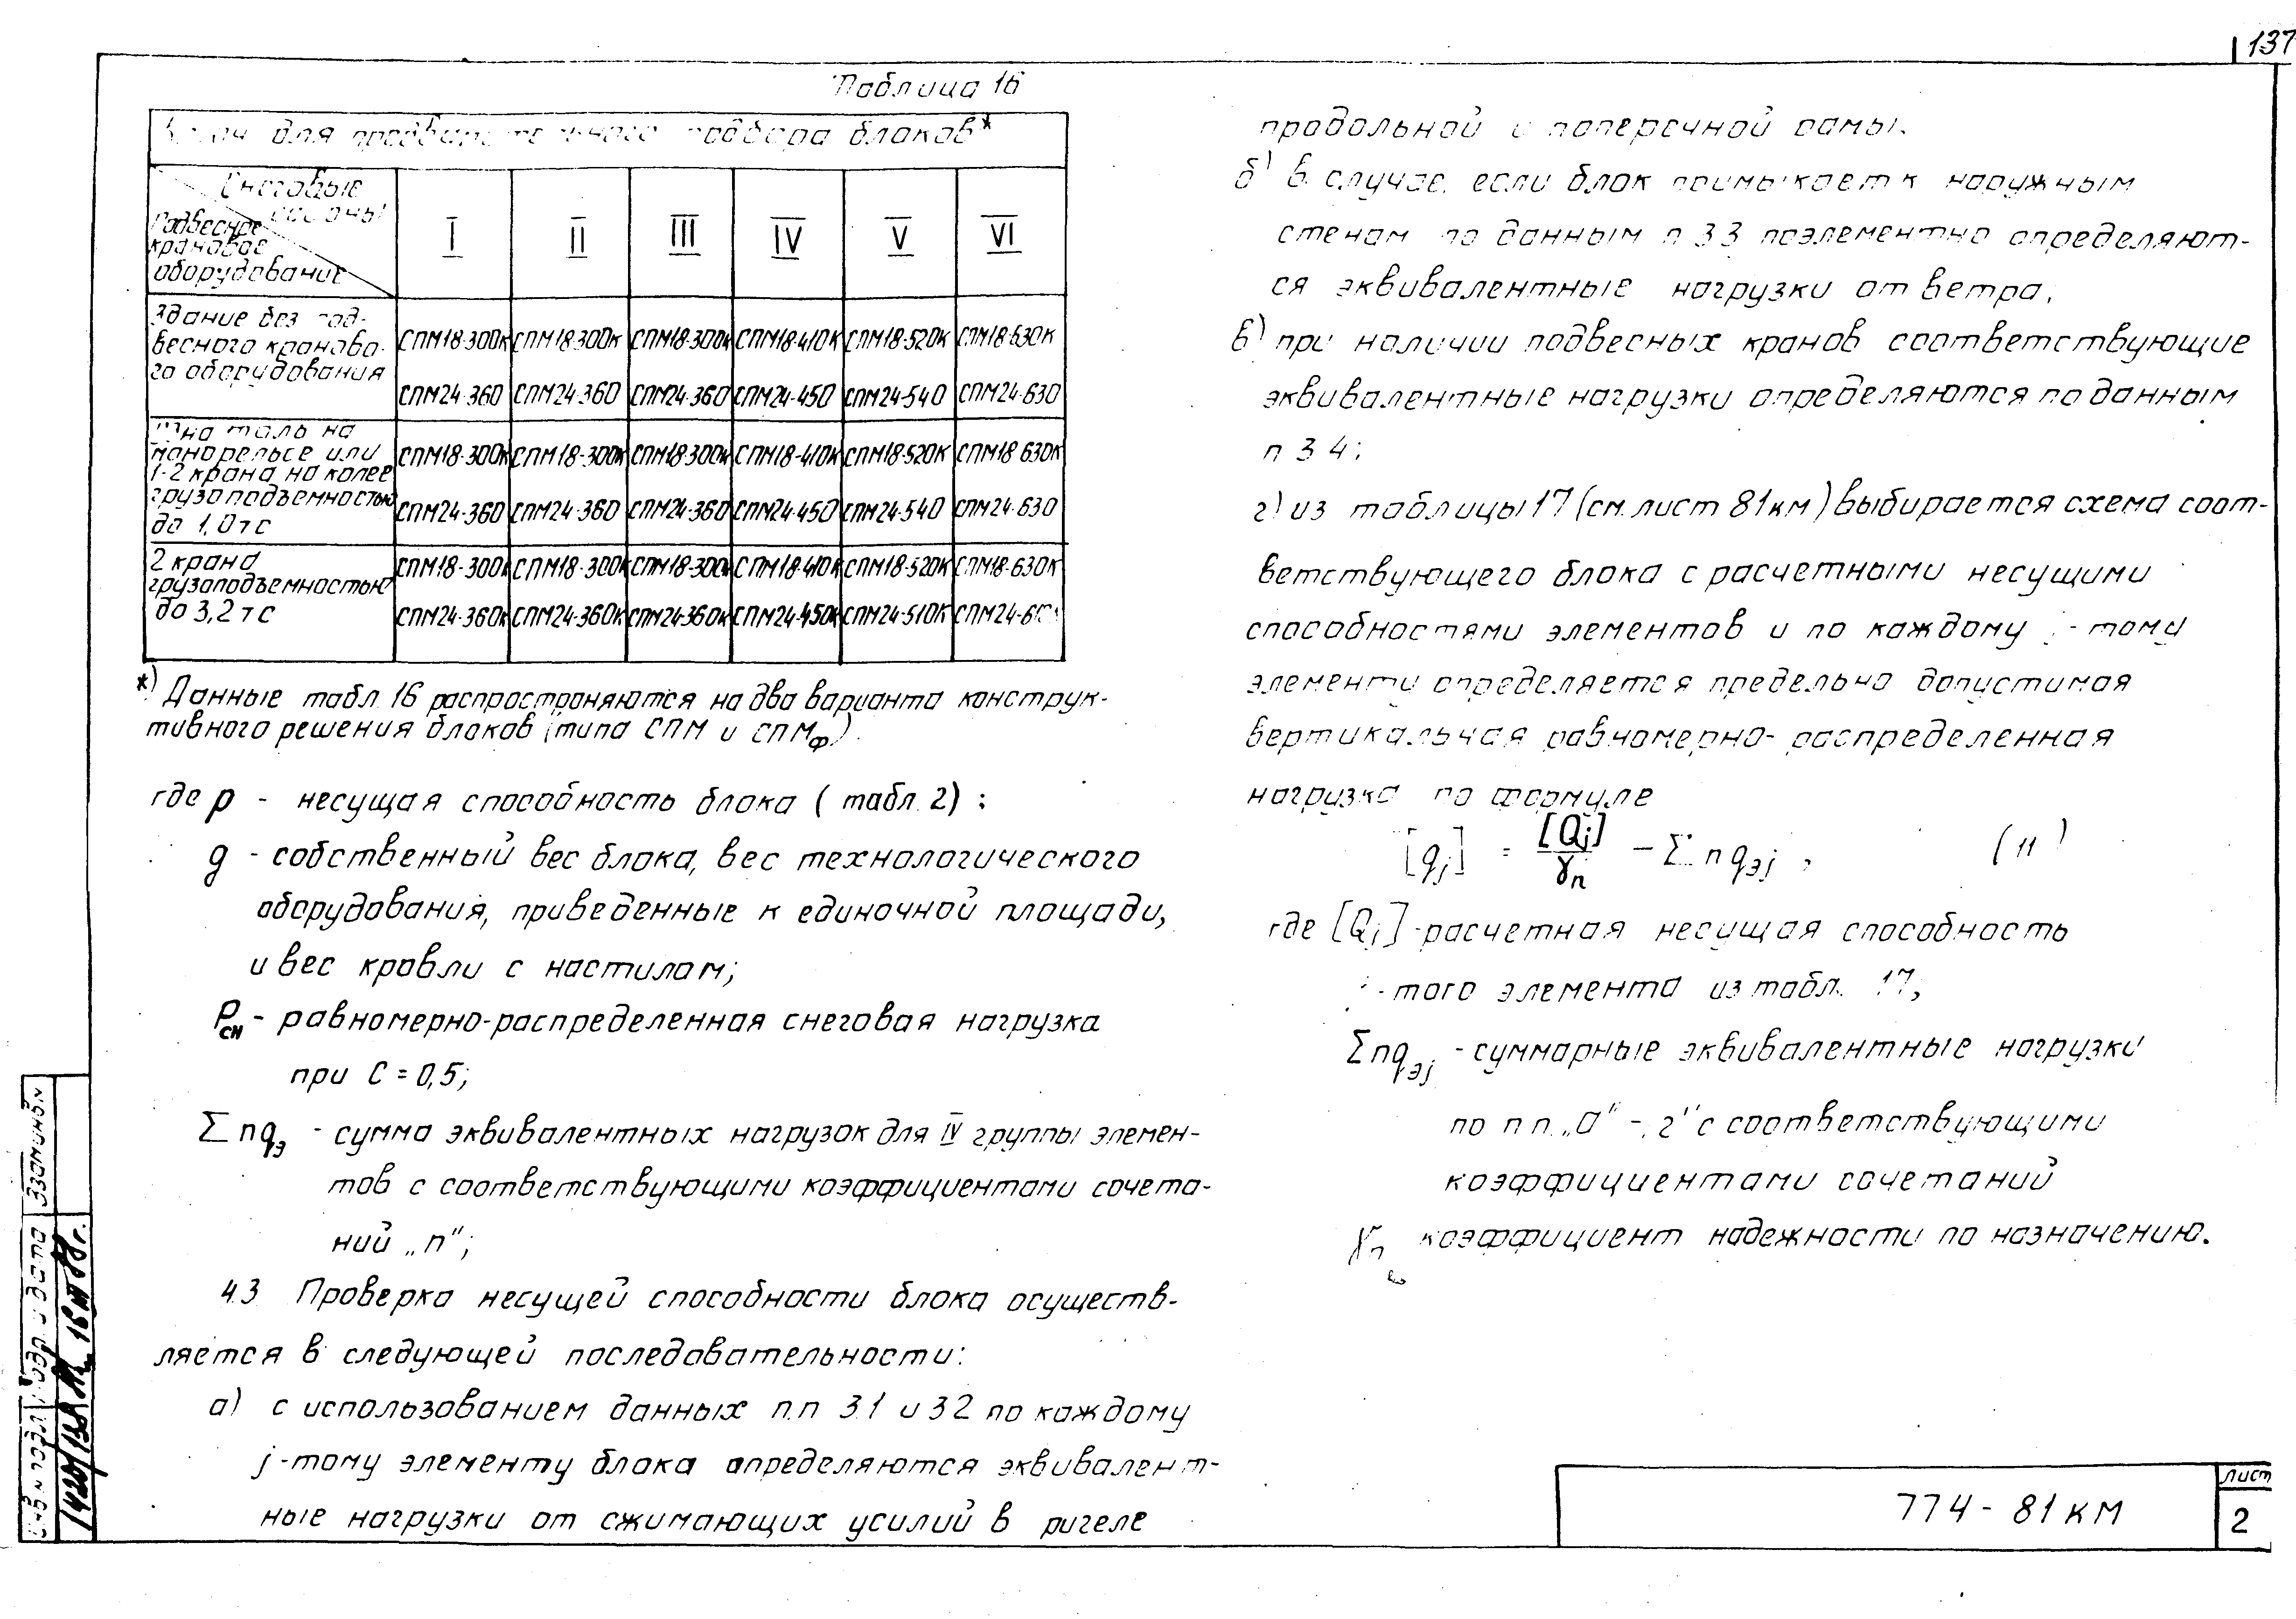 137
Таблица 16
для подбора блоков*
Снеговые
районы
Подвесное
крановое
оборудование
I II III IV V VI
Здание без под-
весного краново-
го оборудования
СПМ18-300К СПМ18-300К СПМ18-300К СПМ18-410К СПМ18-520К СПМ18-630К
СПМ24-360 СПМ24-360 СПМ24-360 СПМ24-450 СПМ24-540 СПМ24-630
Одна таль на
монорельсе или
1-2 крана на колее
грузоподъемностью
до 1,0тс
СПМ18-300К СПМ18-300К СПМ18-300К СПМ18-410К СПМ18-520К СПМ18-630К
СПМ24-360 СПМ24-360 СПМ24-360 СПМ24-450 СПМ24-540 СПМ24-630
2 крана
грузоподъемностью
до 3,2тс
СПМ18-300К СПМ18-300К СПМ18-300К СПМ18-410К СПМ18-520К СПМ18-630К
СПМ24-360К СПМ24-360К СПМ24-360К СПМ24-450К СПМ24-510К
*) Данные табл. 16 распространяются на два варианта конструк-
тивного решения блоков (типа СПМ и СПМф).
где p - несущая способность блока (табл. 2);
g - собственный вес блока, вес технологического
оборудования, приведенные к единочной площади,
и вес кровли с настилом;
Pсн - равномерно-распределенная снеговая нагрузка
при С = 0,5;
Σnqэ - сумма эквивалентных нагрузок для IV группы элемен-
тов с соответствующими коэффициентами сочета-
ний „n“;
4.3 Проверка несущей способности блока осуществ-
ляется в следующей последовательности:
а) с использованием данных п.п 3.1 и 3.2 по каждому
j-тому элементу блока определяются эквивалент-
ные нагрузки от сжимающих усилий в ригеле
продольной и поперечной рамы.
б) в случае, если блок примыкает к наружным
стенам по данным п 3.3 поэлементно определяют-
ся эквивалентные нагрузки от ветра;
в) при наличии подвесных кранов соответствующие
эквивалентные нагрузки определяются по данным
п 3.4;
г) из таблицы 17 (см. лист 81км) выбирается схема соот-
ветствующего блока с расчетными несущими
способностями элементов и по каждому j-тому
элементу определяется предельно допустимая
вертикальная равномерно-распределенная
нагрузка по формуле
[qj] = [Qj]/γn - Σnqэj, (11)
где [Qj] - расчетная несущая способность
j-того элемента из табл. 17;
Σnqэj - суммарные эквивалентные нагрузки
по п.п. „а“ - „г“ с соответствующими
коэффициентами сочетаний
γn коэффициент надежности по назначению.
Инв N подл Подп. и дата Взам инв.N
774-81КМ
Лист
2